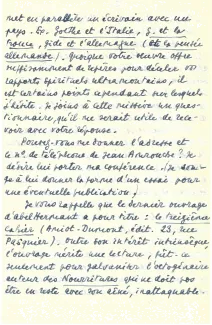 met en parallèle un écrivain avec un
pays. Ex. Goethe et l'Italie, G. et la
Suisse, Gide et l'Allemagne (et la pensée
allemande). Quoique votre œuvre offre
suffisamment de repères pour déceler vos
rapports spirituels ultramontains, il
est certains points cependant sur lesquels
j'hésite. Je joins à cette missive un ques-
tionnaire, qu'il me serait utile de rece-
voir avec votre réponse.
Pouvez-vous me donner l'adresse et
le no. de téléphone de Jean Amrouche? Je
désire lui porter ma conférence. Je son-
ge à lui donner la forme d'un essai pour
une éventuelle publication.
Je vous rappelle que le dernier ouvrage
d'Abel Hermant a pour titre: le treizième
cahier (Amiot-Dumont, édit. 23, rue
). Outre son intérêt intrinsèque,
l'ouvrage mérite une lecture, fût-ce
seulement pour galvaniser l'octogénaire
auteur des Nourritures qui ne doit pas
être en reste avec son aîné, inattaquable